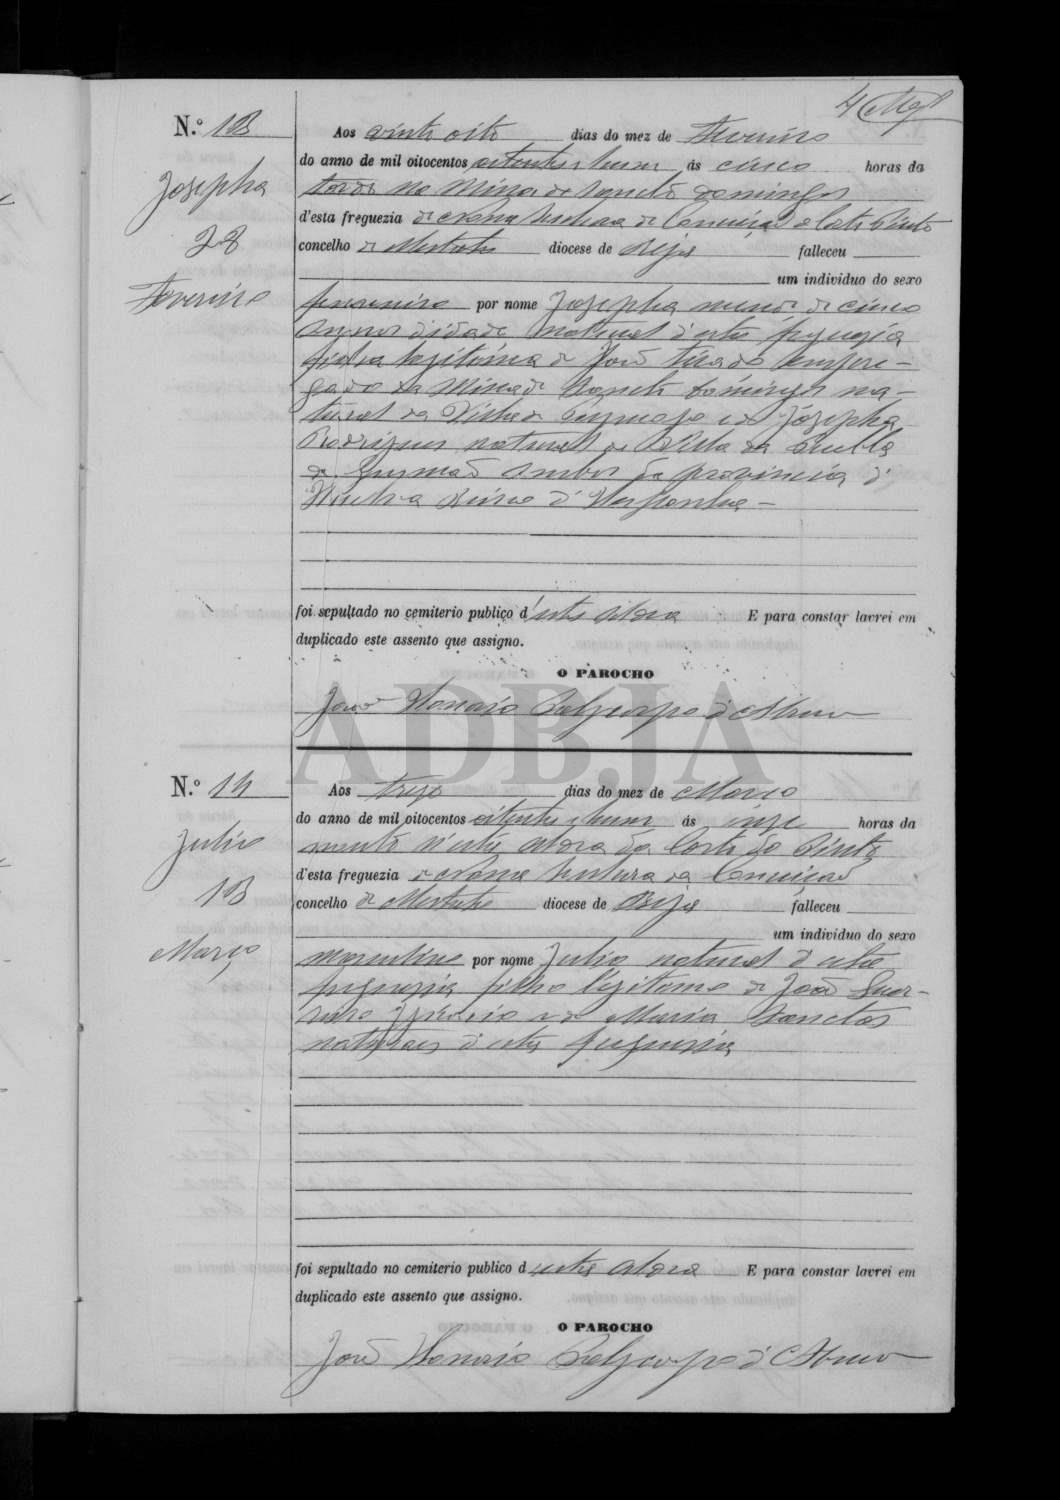 4
N.º 13
Josepha
28
Fevereiro
Aos vinte oito dias do mez de Fevereiro
do anno de mil oitocentos oitenta e hum ás cinco horas da
tarde na Mina de Sancto Domingos
d'esta freguezia de Nossa Senhora da Conceição e Corte Pinto
concelho de Mertola diocese de Beja falleceu
um individuo do sexo
femenino por nome Josepha menor de cinco
annos d'idade natural d'esta freguezia
filha legitima de José Tirado empre-
gado da Mina de Sancto Domingos na-
tural da Villa de e de Josepha
Rodrigues natural da Villa da Puebla
de Gusmão ambos da provincia d'
Huelva Reino d'Hespanha
foi sepultado no cemiterio publico d'esta aldea E para constar lavrei em
duplicado este assento que assigno.
O PAROCHO
João Honorio d'Abreu
ADBJA
N.º 14
Julio
13
Março
Aos treze dias do mez de Março
do anno de mil oitocentos oitenta e hum ás onze horas da
d'esta aldea da Corte do Pinto
d'esta freguezia de Nossa Senhora da Conceição
concelho de Mertola diocese de Beja falleceu
um individuo do sexo
masculino por nome Julio natural d'esta
freguezia filho legitimo de João Guer-
reiro e de Maria Sanctos
naturaes d'esta freguezia
foi sepultado no cemiterio publico d'esta aldea E para constar lavrei em
duplicado este assento que assigno.
O PAROCHO
João Honorio d'Abreu